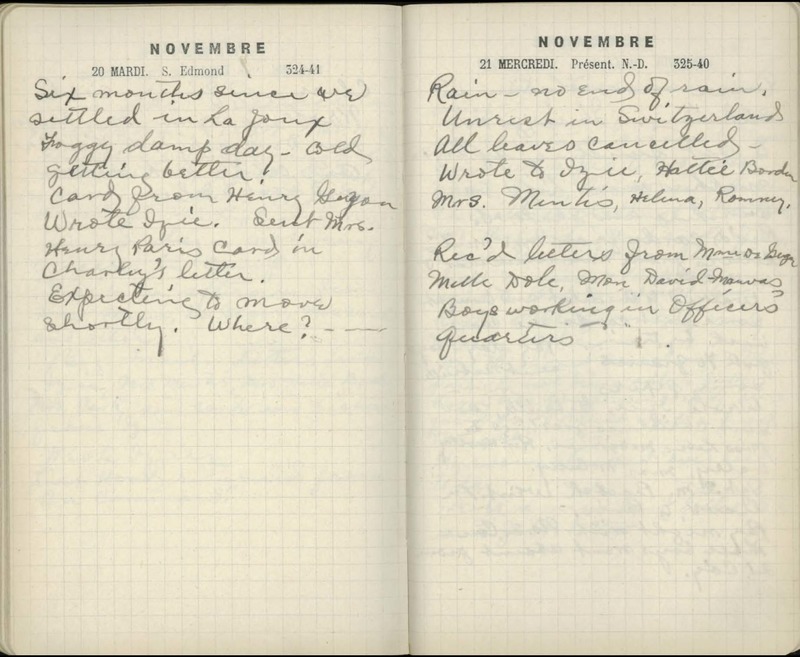 NOVEMBRE
20 MARDI. S. Edmond 324-41
Six months since we
settled in La Joux
Foggy damp day - Cold
getting better.
Card from Henry
Wrote Izie. Sent Mrs.
Henry Paris Card in
Charley's letter.
Expecting to move
shortly. Where? - —
NOVEMBRE
21 MERCREDI. Présent. N.-D. 325-40
Rain - no end of rain.
Unrest in Switzerland
All leaves cancelled -
Wrote to Izie, Hattie Borden
Mrs. Mentis, Helena, Romney.
Rec'd letters from Mme De
Melle Dole, Mon David
Boys working in Officers'
quarters